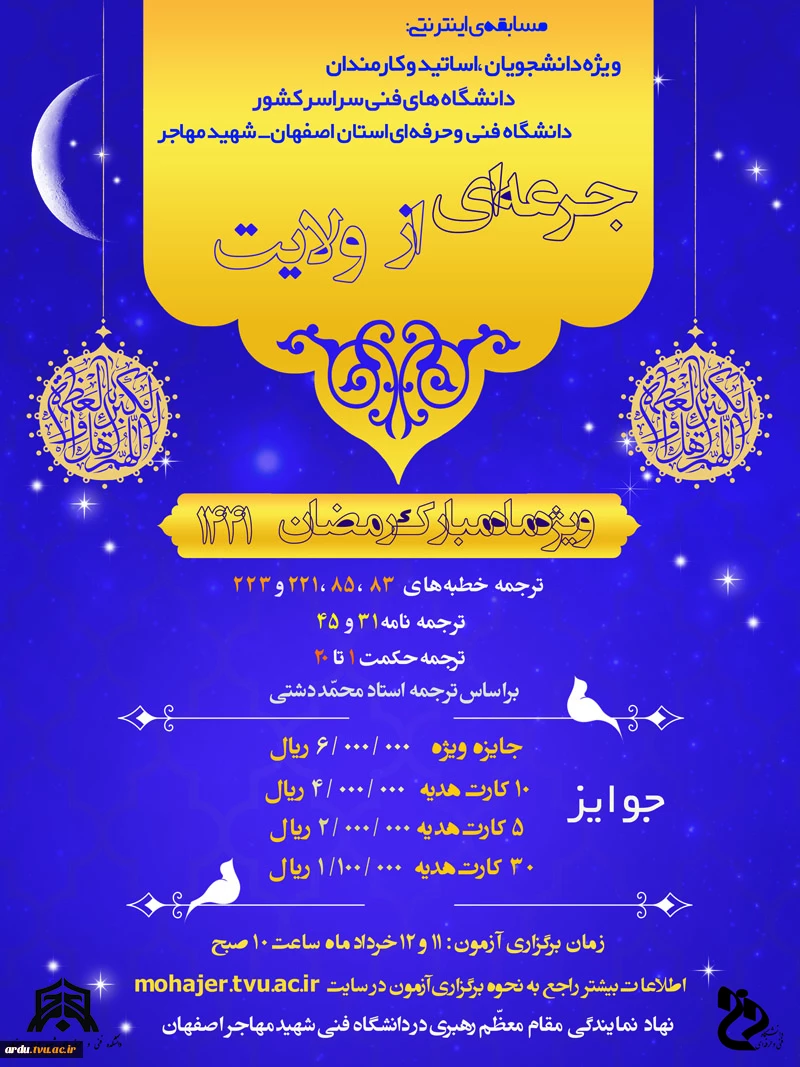 مسابقه‌ی اینترنتی:
ویژه دانشجویان، اساتید و کارمندان
دانشگاه های فنی سراسر کشور
دانشگاه فنی و حرفه ای استان اصفهان_ شهید مهاجر
جرعه‌ای از ولایت
ویژه ماه مبارک رمضان ۱۴۴۱
ترجمه خطبه های ۸۳ ،۸۵ ،۲۲۱ و ۲۲۳
ترجمه نامه ۳۱ و ۴۵
ترجمه حکمت ۱ تا ۲۰
براساس ترجمه استاد محمّد دشتی
جوایز
جایزه ویژه ۶/۰۰۰/۰۰۰ ریال
۱۰ کارت هدیه ۴/۰۰۰/۰۰۰ ریال
۵ کارت هدیه ۲/۰۰۰/۰۰۰ ریال
۳۰ کارت هدیه ۱/۱۰۰/۰۰۰ ریال
زمان برگزاری آزمون: ۱۱ و ۱۲ خرداد ماه ساعت ۱۰ صبح
اطلاعات بیشتر راجع به نحوه برگزاری آزمون در سایت mohajer.tvu.ac.ir
نهاد نمایندگی مقام معظّم رهبری در دانشگاه فنی شهید مهاجر اصفهان
ardu.tvu.ac.ir